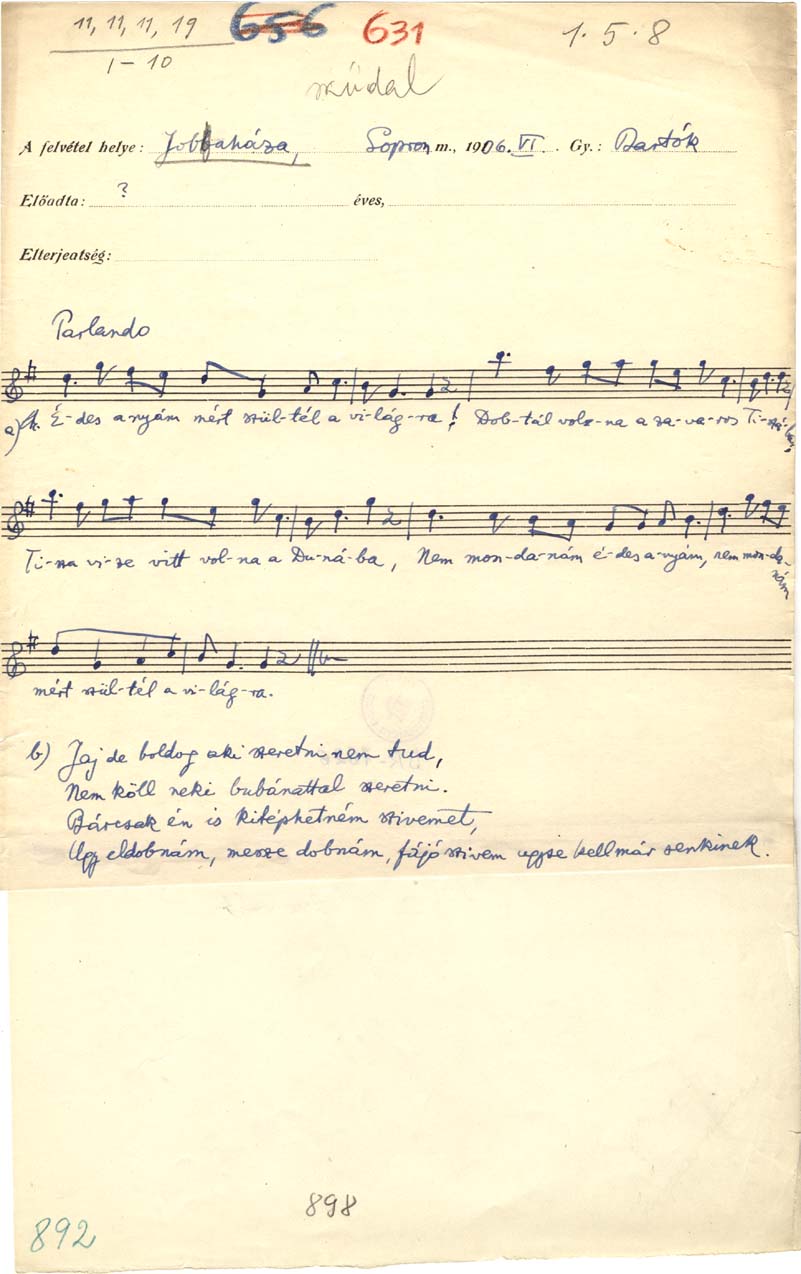 11, 11, 11, 19 656 631 1.5.8
1-10
műdal
A felvétel helye: Jobbaháza, Sopron m., 1906. VI. Gy.: Bartók
Előadta: ? éves,
Elterjeatség:
Parlando
a) É-des a-nyám mért szül-tél a vi-lág-ra! Dob-tál vol-na a za-va-ros Ti-szá-ba,
Ti-sza vi-ze vitt vol-na a Du-ná-ba, Nem mon-da-nám é-des a-nyám, nem mon-da-nám
mért szül-tél a vi-lág-ra.
b) Jaj de boldog aki szeretni nem tud,
Nem köll neki bubánattal szeretni.
Bárcsak én is kitéphetném szivemet,
Ugy eldobnám, messze dobnám, fájó szivem ugyse kell már senkinek.
898
892